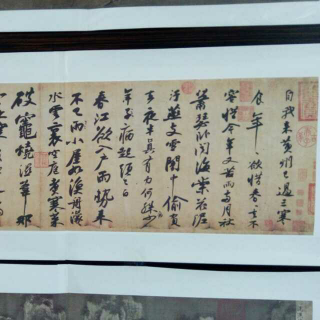 自我來黃州已過三寒
食年〻欲惜春〻去不
容惜今年又苦雨兩月秋
蕭瑟卧聞海棠花泥
汙燕支雪闇中偷負
去夜半真有力何殊
年子病起頭已白
春江欲入戶雨勢來
不已雨小屋如漁舟濛〻
水雲裏空庖煮寒菜
破竈燒濕葦那